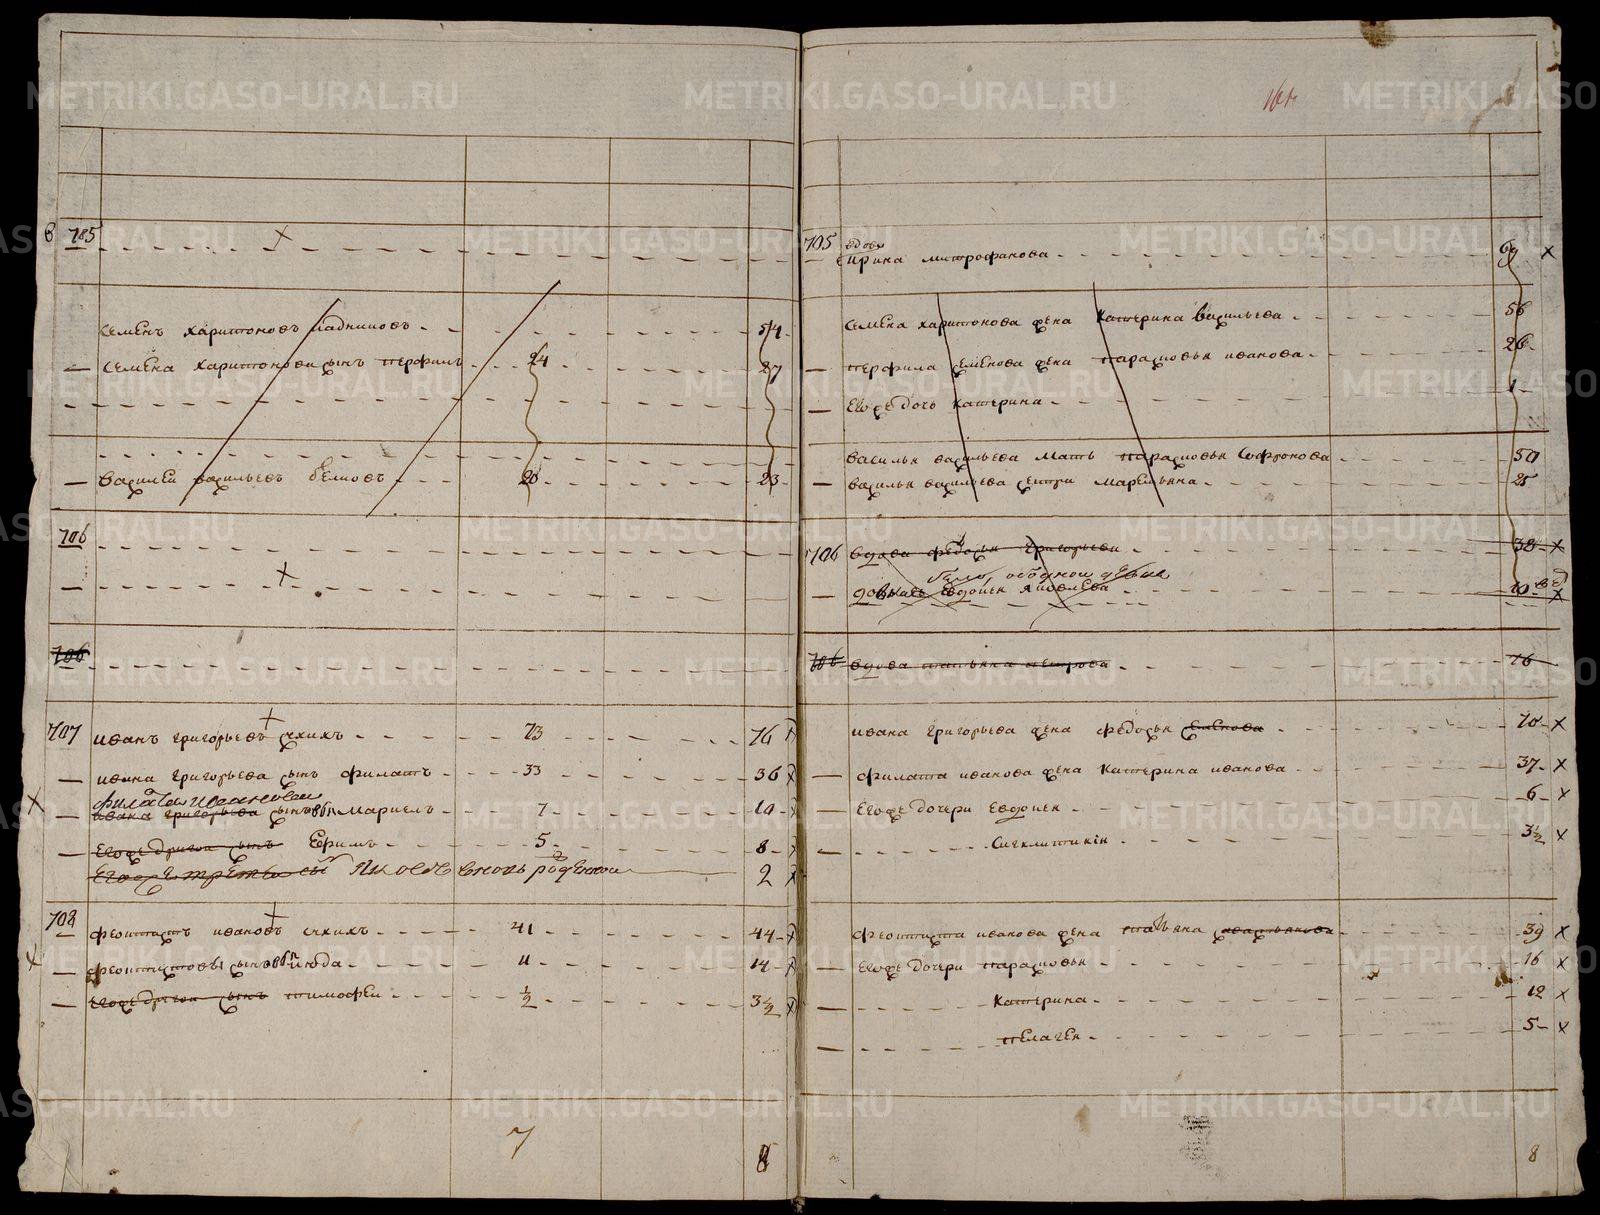 161
8 705
Семенъ Харитоновъ 54
Семена Харитонова сынъ Перфилъ 24 27
Василей Васильевъ Беловъ 20 23
706
706
707 Иванъ Григорьевъ 73 76
Ивана Григорьева сынъ Филатъ 33 36
Филата Ивановы
Ивана Григорьева сынов Маркелъ 7 10
Его же другой сынъ Ефимъ 5 8
Его же третей сы Яковъ вновь рожденной 2
708 Феоктистъ Ивановъ 41 44
Феоктистовы сынов 11 14
Его же другой сынъ Тимофей ½ 3½
7 8
705 вдова
Ирина Митрофанова 69
Семена Харитонова жена Катерина Васильева 56
Перфила Семенова жена Парасковья Иванова 26
Его же дочь Катерина 1
Василья Васильева мать Парасковья Софронова 50
Василья Васильева сестра Маремьяна 25
706 вдова Федосья Григорьева 38
Евдокея Яковлева 10
706 вдова Татьяна Петрова 76
Ивана Григорьева жена Федосья Семенова 70
Филата Иванова жена Катерина Иванова 37
Его же дочери Евдокея 6
Сигклитикия 3½
Феоктиста Иванова жена Татьяна 39
Его же дочери Парасковья 16
Катерина 12
Пелагея 5
8
METRIKI.GASO-URAL.RU